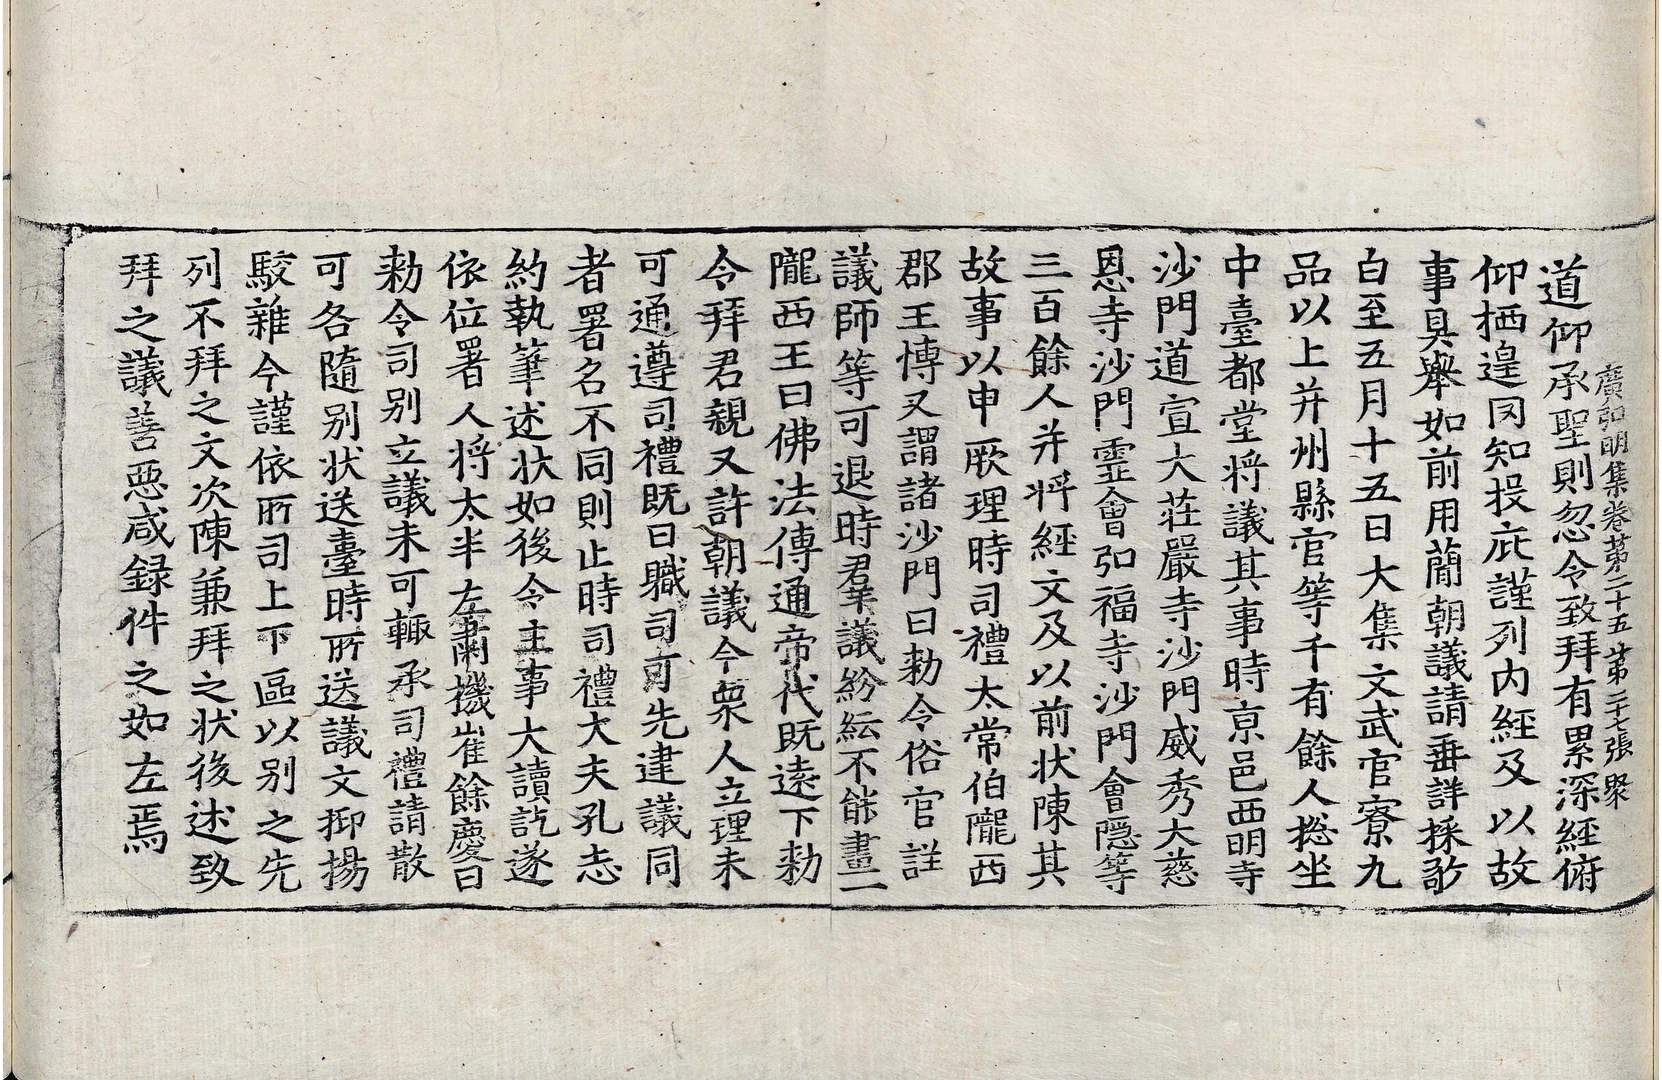 廣弘明集卷第二十五 第二十七張 聚
道仰承聖則忽令致拜有累深經俯
仰栖遑罔知投庇謹列内經及以故
事具舉如前用蕳朝議請垂詳採敬
白至五月十五日大集文武官寮九
品以上并州縣官等千有餘人揔坐
中臺都堂将議其事時京邑西明寺
沙門道宣大莊嚴寺沙門威秀大慈
恩寺沙門霊會弘福寺沙門會隠等
三百餘人并将經文及以前状陳其
故事以申厥理時司禮太常伯隴西
郡王博叉謂諸沙門曰勑令俗官詳
議師等可退時羣議紛紜不能畫一
隴西王曰佛法傳通帝代既遠下勑
令拜君親又許朝議今衆人立理未
可通遵司禮既曰職司可先建議同
者署名不同則止時司禮大夫孔志
約執筆述状如後令主事大讀訖遂
依位署人将太半左肅機崔餘慶曰
勑令司别立議未可輙承司禮請散
可各隨别状送臺時所送議文抑揚
駮雜今謹依所司上下區以别之先
列不拜之文次陳兼拜之状後述致
拜之議善惡咸録件之如左焉